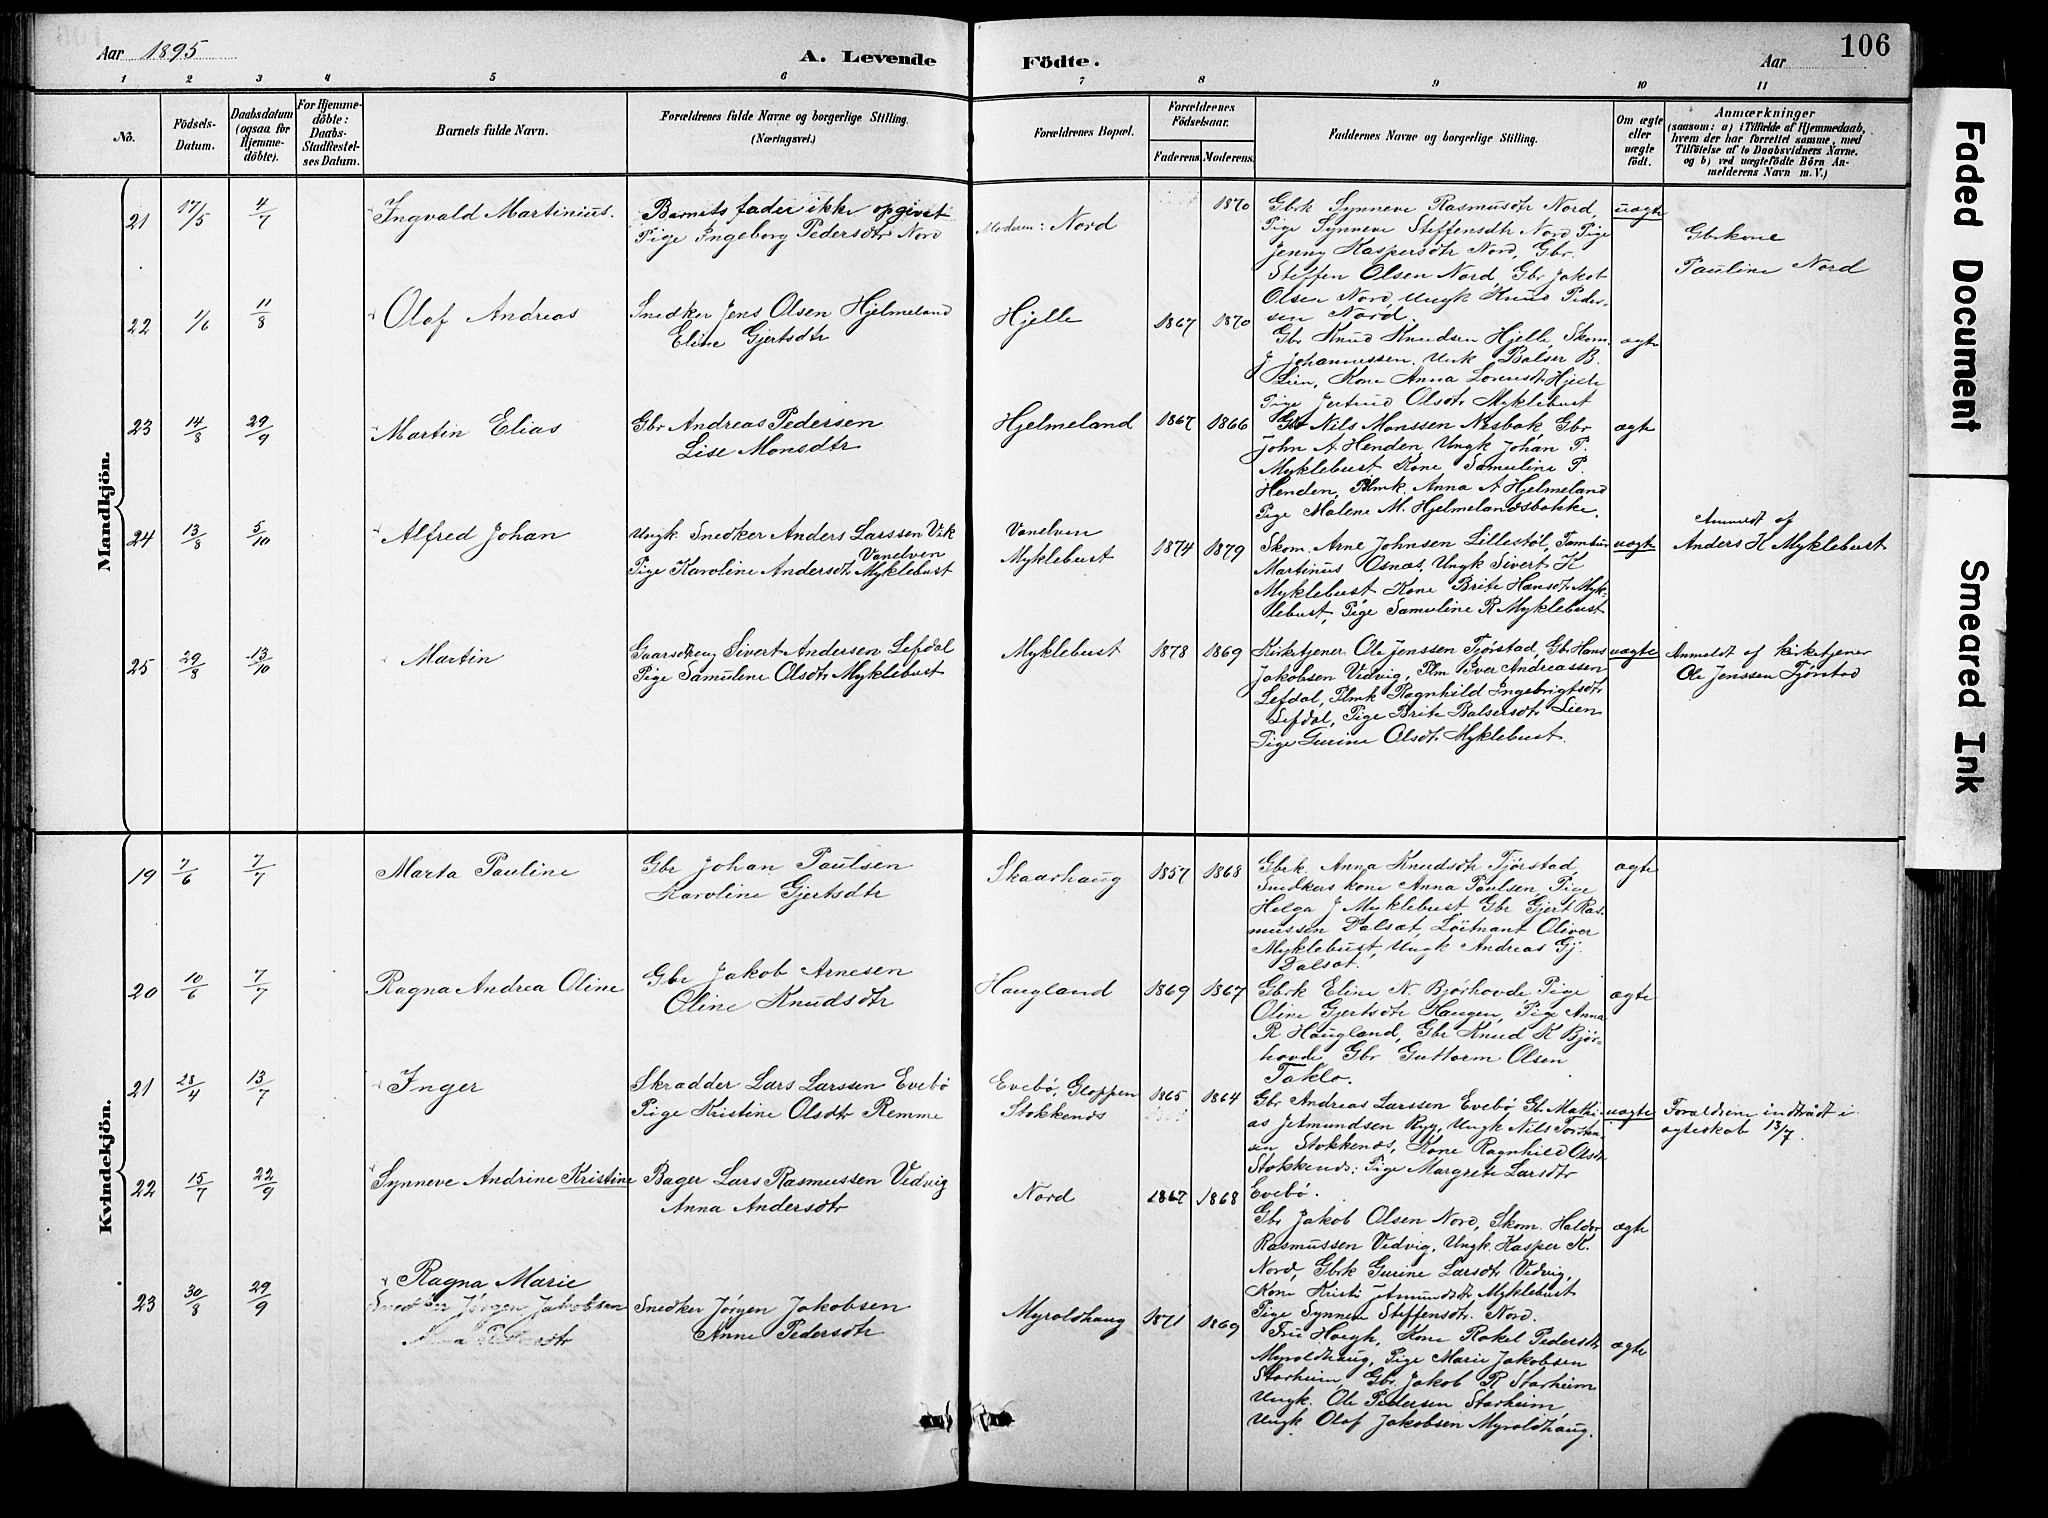 Aar 1895
A. Levende
Födte.
Aar
106
1 2 3 4 5 6 7 8 9 10 11
No.
Födsels-
Datum.
Daabsdatum
(ogsaa for
Hjemme-
döbte).
For Hjemme-
döbte:
Daabs-
Stadfæstel-
ses Datum.
Barnets fulde Navn.
Forældrenes fulde Navne og borgerlige Stilling.
(Næringsvei.)
Forældrenes Bopæl.
Forældrenes
Födselsaar.
Faderens.
Moderens.
Faddernes Navne og borgerlige Stilling.
Om ægte
eller
uægte
födt.
Anmærkninger
(saasom: a) i Tilfælde af Hjemmedaab,
hvem der har forrettet samme, med
Tilföielse af to Daabsvidners Navne,
og b) ved uægtefödte Börn An-
melderens Navn m. V.)
Mandkjön.
21 17/5 4/7 Ingvald Martinius.
Barnets fader ikke opgivet
Pige Ingeborg Pedersdtr Nord
Moderen: Nord
1870
Gbrk Synneve Rasmusdtr Nord,
Pige Synneve Steffensdtr Nord Pige
Jenny Kaspersdtr Nord, Gbr.
Steffen Olsen Nord, Gbr Jakob
Olsen Nord, Ungk Knud Peder-
sen Nord.
uægte
Gbrkone
Pauline Nord
22 1/6 11/8 Olaf Andreas
Snedker Jens Olsen Hjelmeland
Eline Gjertsdtr
Hjelle
1867 1870
Gbr Knud Knudsen Hjelle, Skom.
J Johannessen, Ungk Balser B.
Lien, Kone Anna Lorensdtr Hjelle
Pige Jertrud Olsdtr Myklebust
ægte
23 14/8 29/9 Martin Elias
Gbr Andreas Pedersen
Lise Monsdtr
Hjelmeland
1867 1866
Gbr Nils Monssen Nesbak Gbr
John A Henden, Ungk Johan P.
Myklebust Kone Samuline P.
Henden, Plmk. Anna A Hjelmeland
Pige Malene M. Hjelmelandsbakke.
ægte
24 13/8 5/10 Alfred Johan
Ungk Snedker Anders Larssen Vik
Vanelven
Pige Karoline Andersdtr Myklebust
Vanelven
Myklebust
1874 1879
Skom. Arne Johnsen Lillestöl, Tambur
Martinus Osnæs, Ungk Sivert K
Myklebust Kone Brite Hansdtr Myk-
lebust, Pige Samuline R Myklebust
uægte
Anmeldt af
Anders H Myklebust
25 29/8 13/10 Martin
Gaardbrug Sivert Andersen Lefdal
Pige Samuline Olsdtr Myklebust
Myklebust
1878 1869
Kirketjener Ole Jenssen Tjørstad, Gb. Hans
Jakobsen Vedvig, Plm Iver Andreassen
Lefdal, Plmk Ragnhild Ingebrigtsdtr
Lefdal, Pige Brite Balsersdtr Lien
Pige Gurine Olsdtr Myklebust.
uægte
Anmeldt af kirketjener
Ole Jenssen Tjørstad
Kvindekjön.
19 7/6 7/7 Marta Pauline
Gbr Johan Paulsen
Karoline Gjertsdtr
Skaarhaug
1857 1868
Gbrk. Anna Knudsdtr Tjørstad,
Snedkers kone Anna Paulsen, Pige
Helga J Myklebust Gbr Gjert Ras-
mussen Dalsæt, Löitnant Oliver
Myklebust, Ungk Andreas Gj.
Dalsæt.
ægte
20 10/6 7/7 Ragna Andrea Oline
Gbr Jakob Arnesen
Oline Knudsdtr
Haugland
1869 1867
Gbrk Eline N. Bjørhovde Pige
Oline Gjertsdtr Haugen, Pige Anna
R Haugland, Gbr Knud K Bjør-
hovde Gbr Guttorm Olsen
Taklo.
ægte
21 28/4 13/7 Inger
Skradder Lars Larssen Evebö
Pige Kristine Olsdtr Remme
Evebö, Gloppen
Stokkenæs
1865 1864
Gbr Andreas Larssen Evebö, Gb. Mathi-
as Jetmundsen Ryg, Ungk Nils Torsten-
sen Stokkenæs, Kone Ragnhild Olsdtr
Stokkenæs, Pige Margrete Larsdtr
Evebö.
uægte
Forældrene indtraadt i
ægteskab 13/7.
22 15/7 22/9 Synneve Andrine Kristine
Bager Lars Rasmussen Vedvig
Anna Andersdtr
Nord
1867 1868
Gbr Jakob Olsen Nord, Skom. Haldor
Rasmussen Vedvig, Ungk. Kasper K.
Nord, Gbrk Gurine Larsdtr Vedvig,
Kone Kristi Jetmundsdtr Myklebust
Pige Synneve Steffensdtr. Nord.
ægte
23 30/8 29/9 Ragna Marie
Snedker Jörgen Jakobsen
Anna Pedersdtr
Snedker Jörgen Jakobsen
Anne Pedersdtr
Myroldhaug
1871 1869
Fru Høegh, Kone Rakel Pedersdtr
Myroldhaug, Pige Marie Jakobsen
Starheim, Gbr. Jakob R Starheim
Ungk. Ole Pedersen Starheim,
Ungk Olaf Jakobsen Myroldhaug.
ægte
Faded Document
Smeared Ink